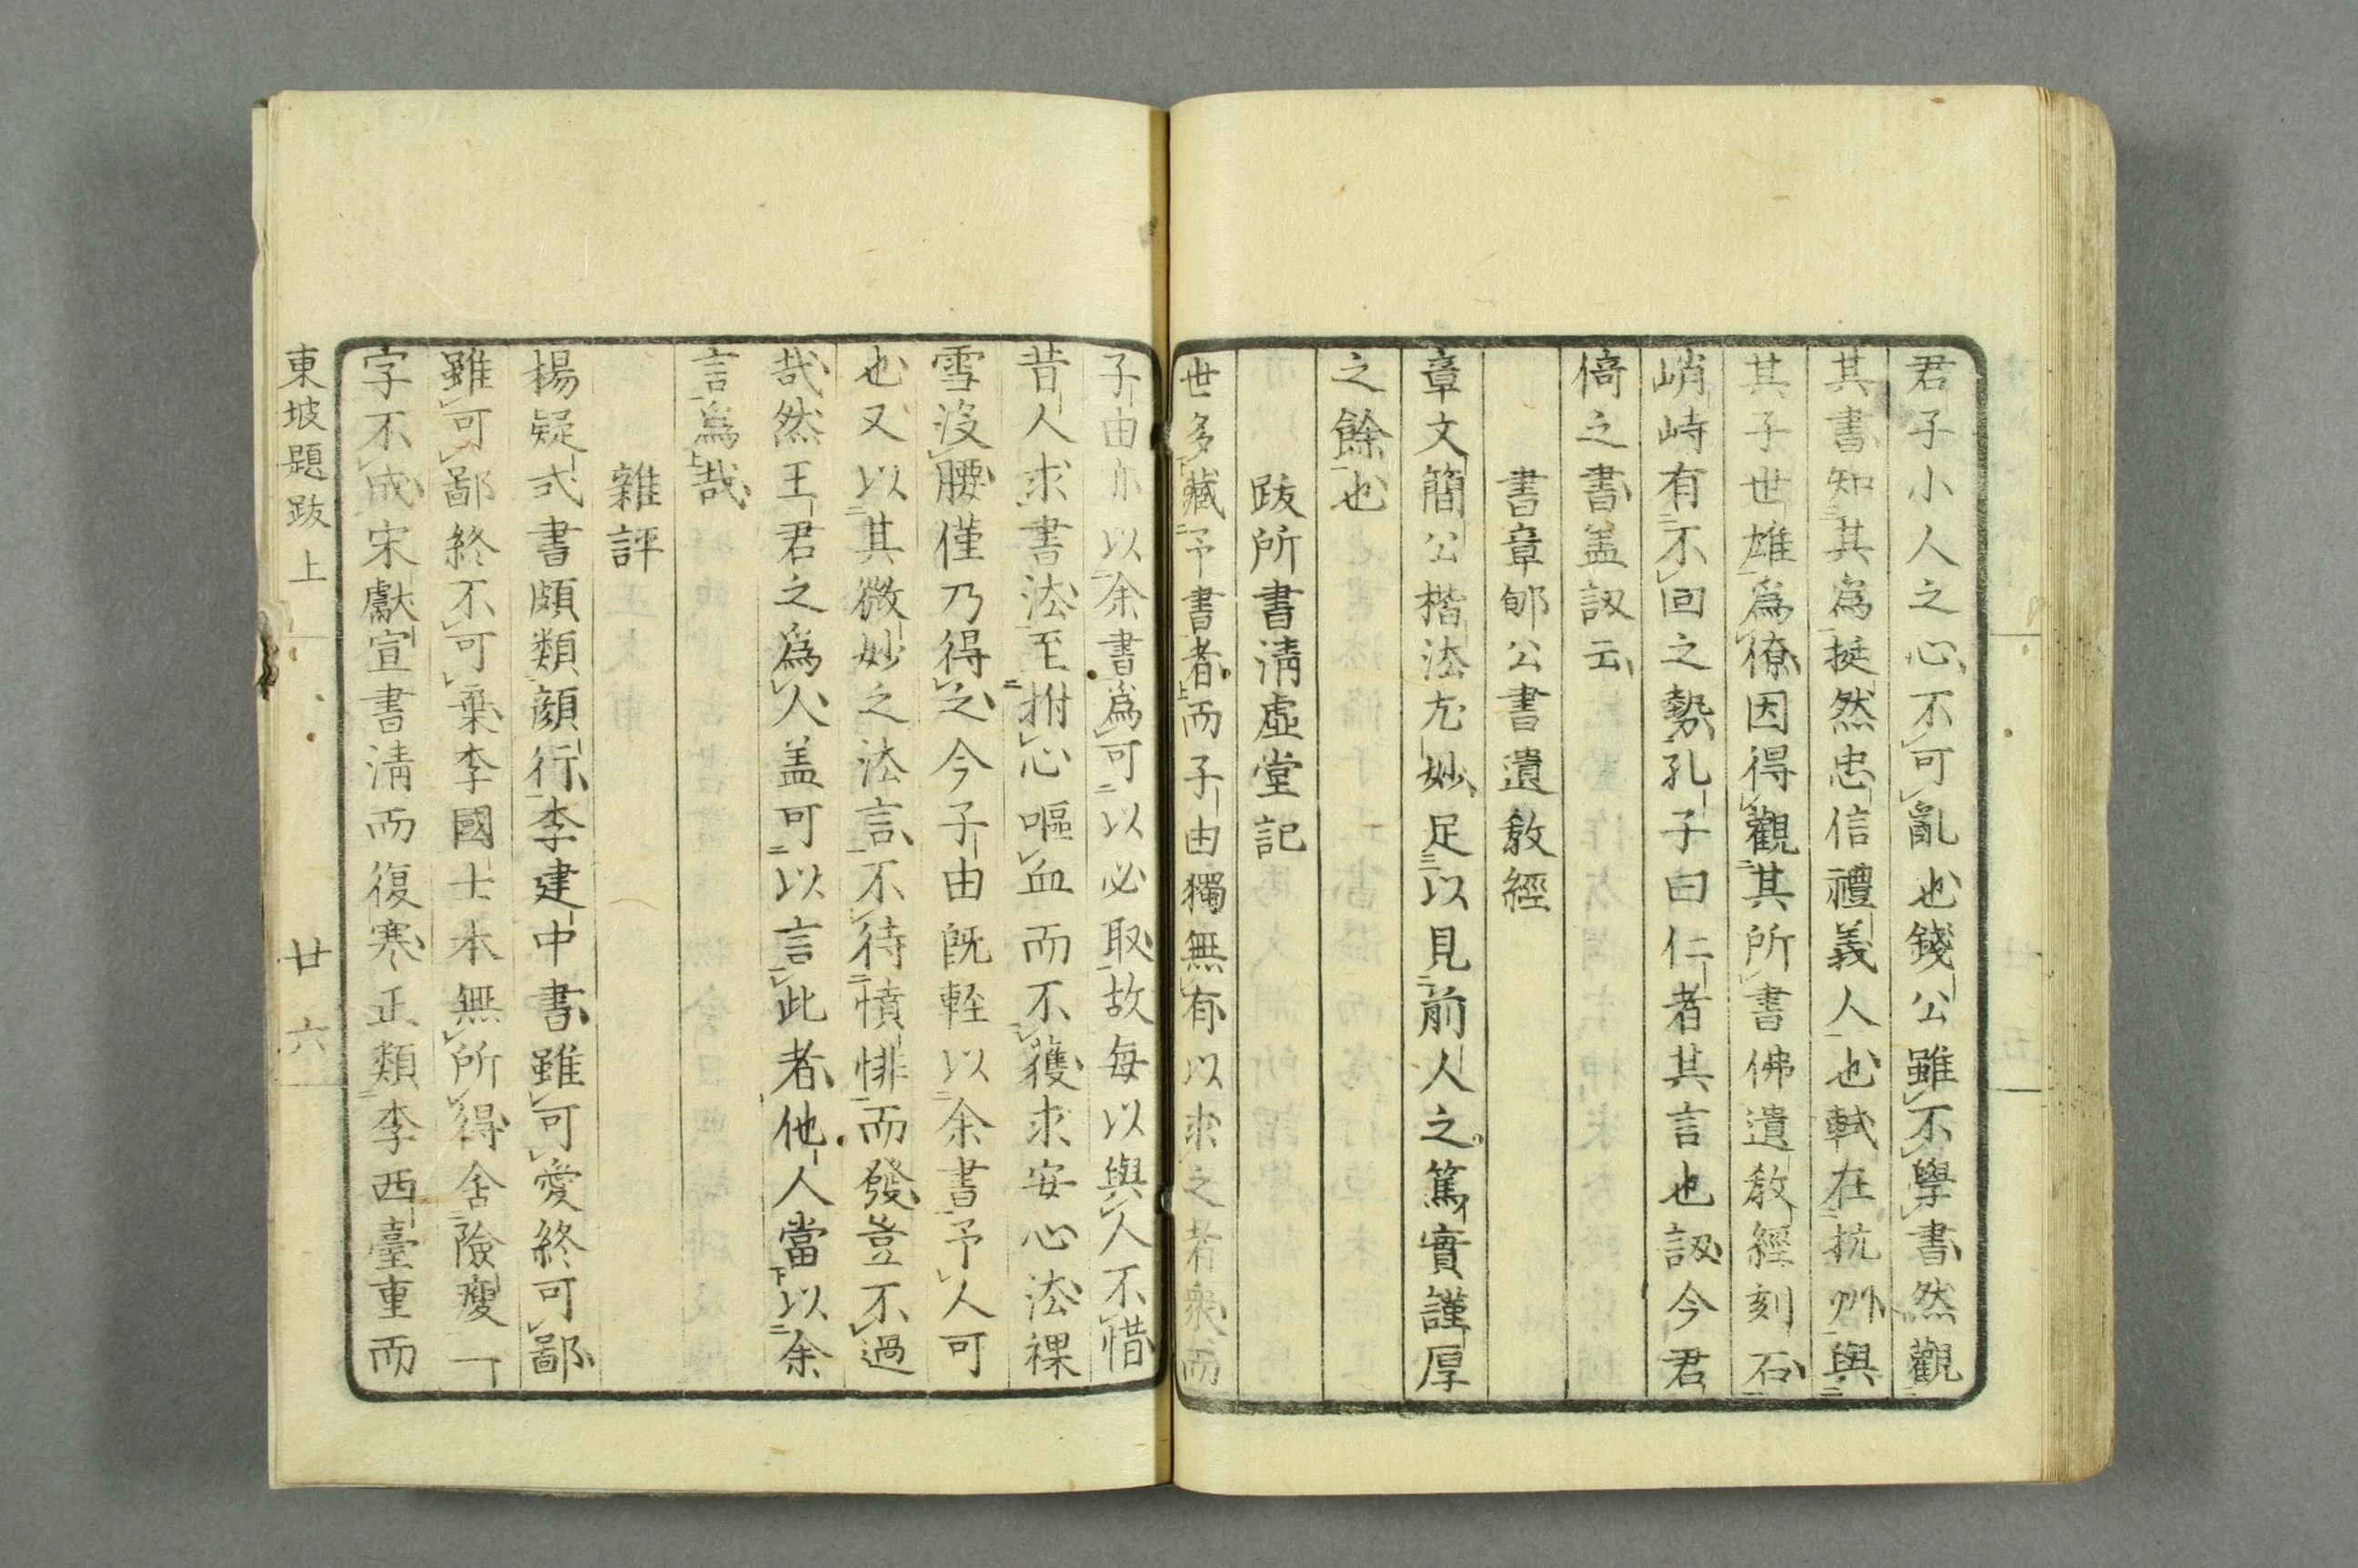 君子小人之心不可亂也錢公雖不學書然觀
其書知其為挺然忠信禮義人也軾在抗州與
其子世雄為僚因得觀其所書佛遺教經刻石
峭峙有不回之勢孔子曰仁者其言也訒今君
倚之書盖訒云
書章郇公書遺教經
章文簡公楷法尤妙足以見前人之篤實謹厚
之餘也
跋所書清虛堂記
世多藏予書者而子由獨無有以求之者衆而
子由亦以余書為可以必取故每以與人不惜
昔人求書法至拊心嘔血而不獲求安心法裸
雪沒腰僅乃得之今子由既軽以余書予人可
也又以其微妙之法言不待憤悱而發豈不過
哉然王君之為人盖可以言此者他人當以余
言為哉
雜評
楊疑式書頗類顔行李建中書雖可愛終可鄙
雖可鄙終不可棄李國士本無所得舍險瘦一
字不成宋獻宣書清而復寒正類李西臺重而
東坡題跋上 廿六